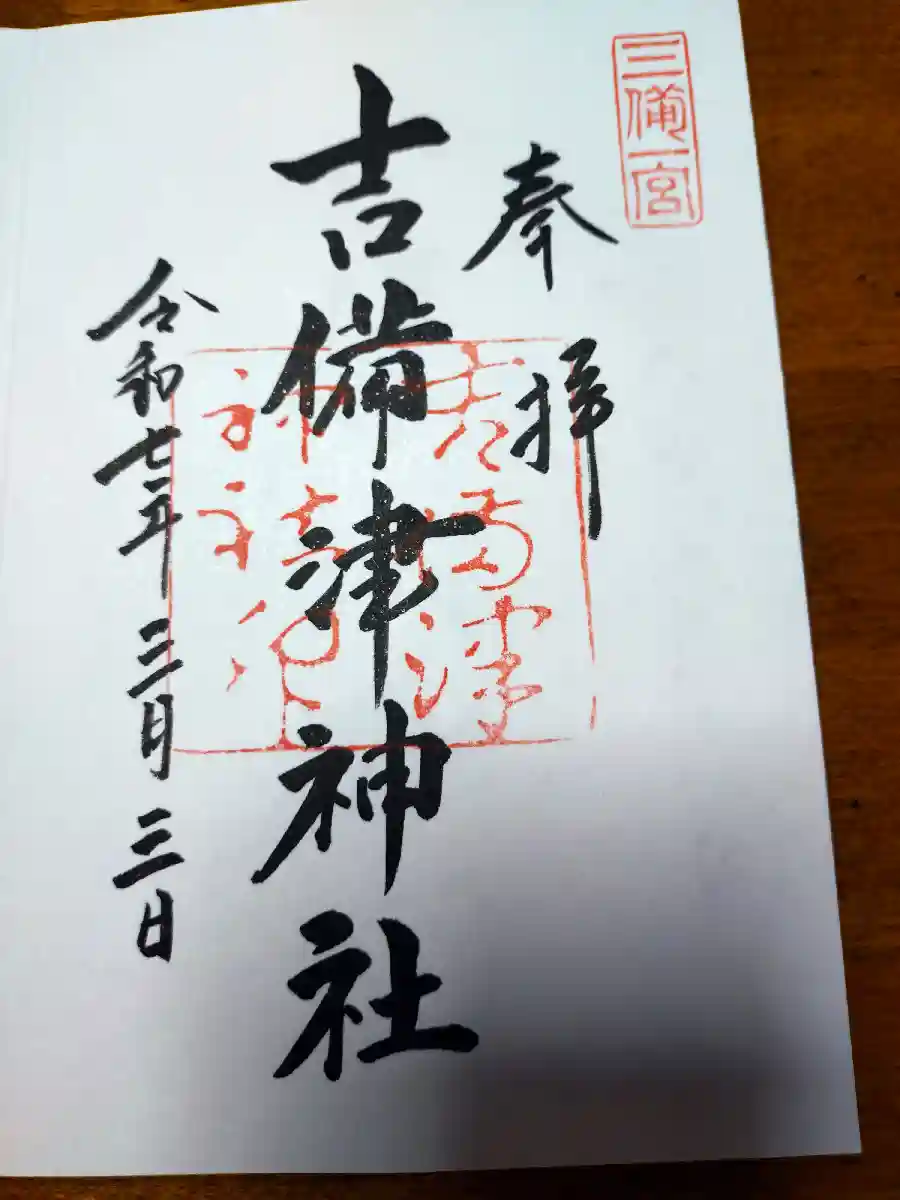 三備一宮
奉拝
吉備津神社
吉備津
神社
令和七年三月三日